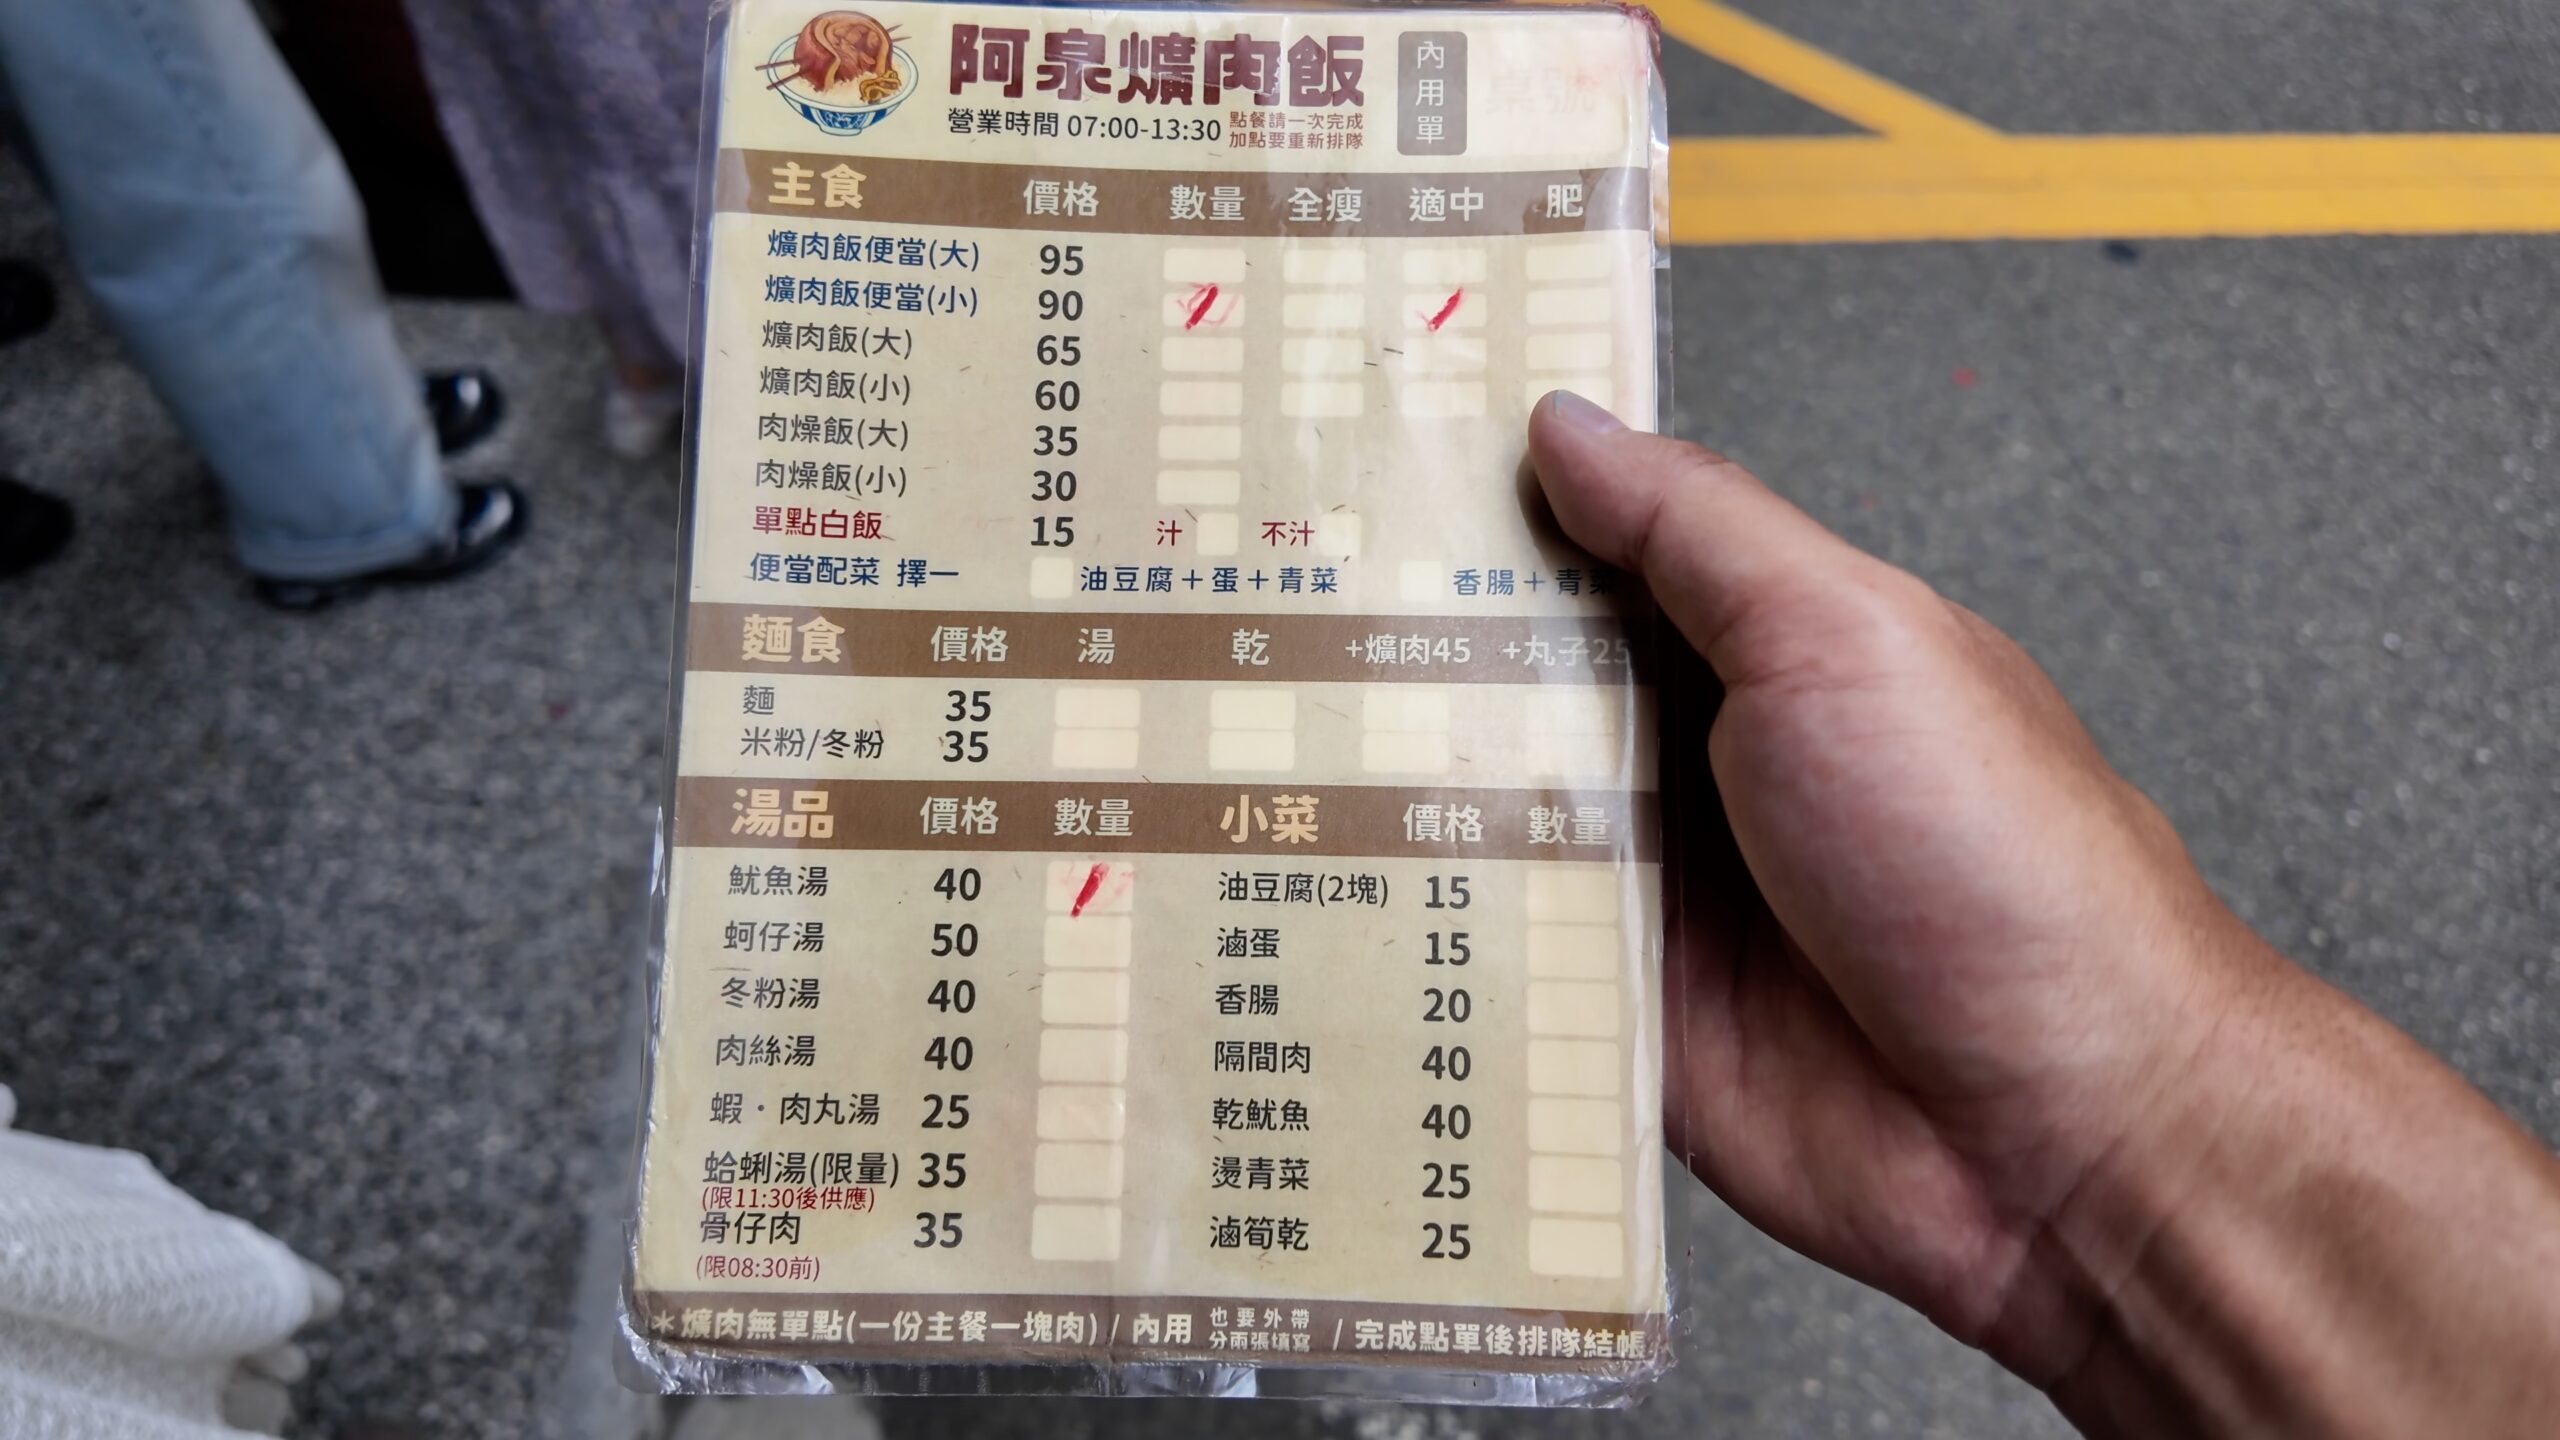 阿泉爌肉飯
內用單
桌號
營業時間 07:00-13:30
點餐請一次完成
加點要重新排隊
主食 價格 數量 全瘦 適中 肥
爌肉飯便當(大) 95
爌肉飯便當(小) 90
爌肉飯(大) 65
爌肉飯(小) 60
肉燥飯(大) 35
肉燥飯(小) 30
單點白飯 15 汁 不汁
便當配菜 擇一 油豆腐+蛋+青菜 香腸+青菜
麵食 價格 湯 乾 +爌肉45 +丸子25
麵 35
米粉/冬粉 35
湯品 價格 數量 小菜 價格 數量
魷魚湯 40 油豆腐(2塊) 15
蚵仔湯 50 滷蛋 15
冬粉湯 40 香腸 20
肉絲湯 40 隔間肉 40
蝦·肉丸湯 25 乾魷魚 40
蛤蜊湯(限量) 35 燙青菜 25
(限11:30後供應)
骨仔肉 35 滷筍乾 25
(限08:30前)
*爌肉無單點(一份主餐一塊肉) / 內用 也要外帶 分兩張填寫 / 完成點單後排隊結帳